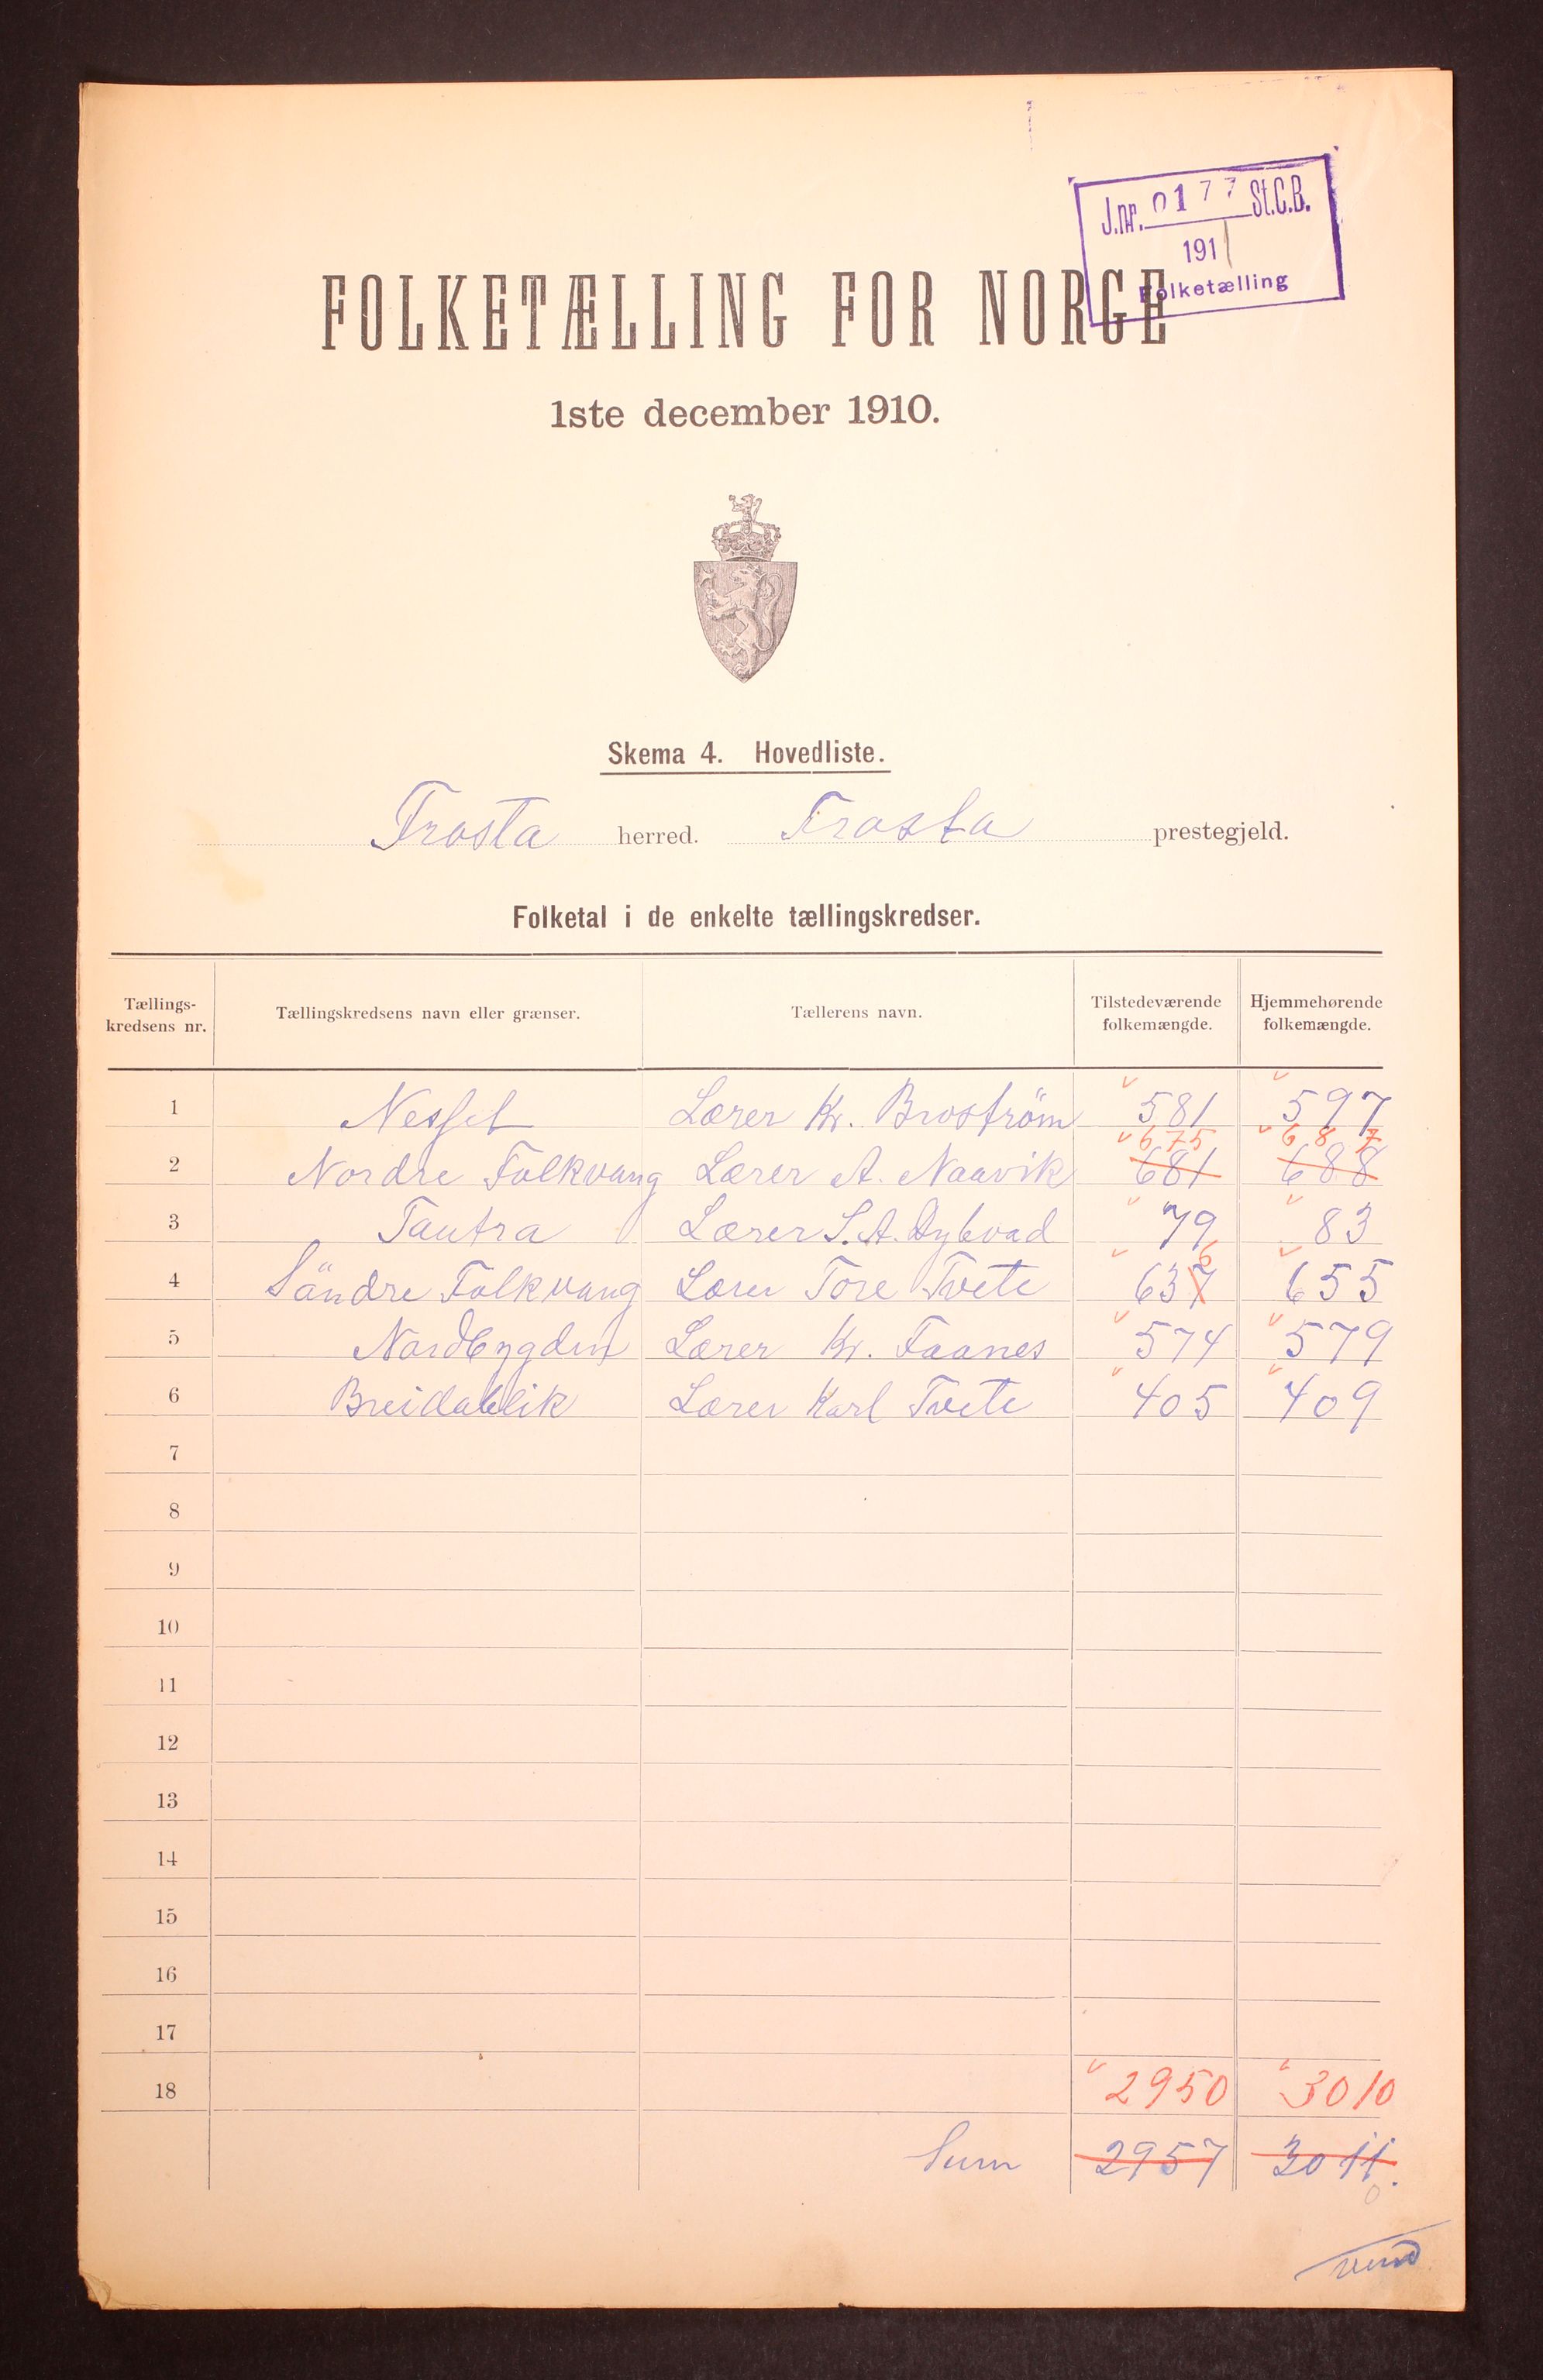 J.nr. 0177 St.C.B.
1911
Folketælling
FOLKETÆLLING FOR NORGE
1ste december 1910.
Skema 4. Hovedliste.
Frosta herred. Frosta prestegjeld.
Folketal i de enkelte tællingskredser.
Tællings-kredsens nr. Tællingskredsens navn eller grænser. Tællerens navn. Tilstedeværende folkemængde. Hjemmehørende folkemængde.
1 Nesset Lærer Kr. Broström 581 597
675 687
2 Nordre Folkvang Lærer A. Naavik 681 688
3 Tautra Lærer S. A. Dybvad 79 83
6
4 Söndre Folkvang Lærer Tore Tvete 637 655
5 Nordbygden Lærer Kr. Faanes 574 579
6 Breidablik Lærer Karl Tvete 405 409
7
8
9
10
11
12
13
14
15
16
17
18 2950 3010
Sum 2957 3011.
0
vend